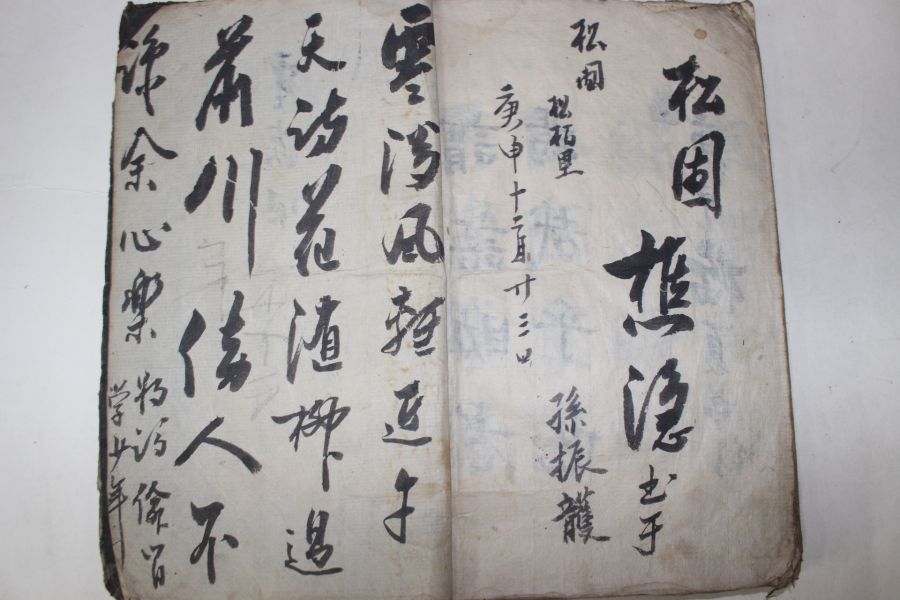 松固樵隱書于
松固
松栢里
庚申十二月廿三日
孫振頀
雲淡風輕近午
天訪花隨柳過
前川傍人不
識余心樂將謂偷閒
學少年